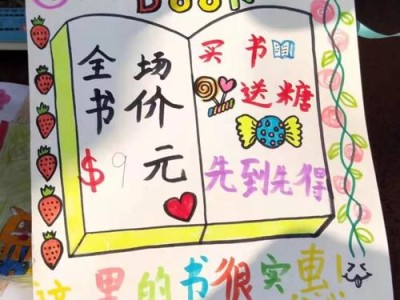 BOOK
全场
书价
$9元
买书
送糖
先到先得
这里的书很实惠!